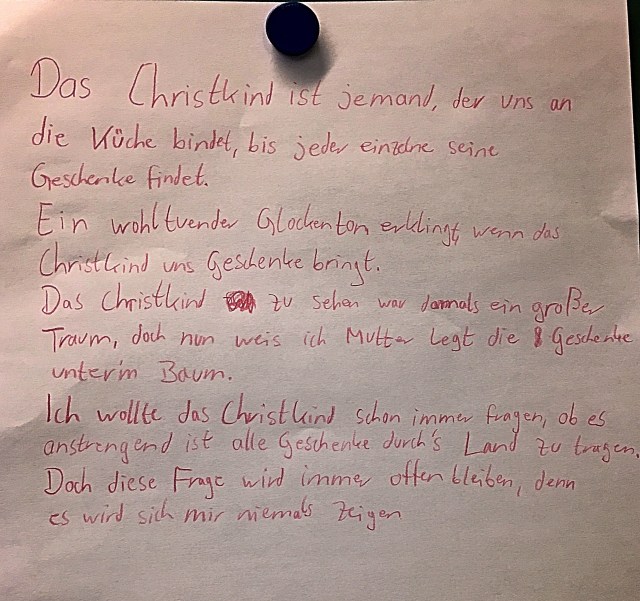 Das Christkind ist jemand, der uns an
die Küche bindet, bis jeder einzelne seine
Geschenke findet.
Ein wohltuender Glockenton erklingt, wenn das
Christkind uns Geschenke bringt.
Das Christkind zu sehen war damals ein großer
Traum, doch nun weis ich Mutter legt die Geschenke
unter'm Baum.
Ich wollte das Christkind schon immer fragen, ob es
anstrengend ist alle Geschenke durch's Land zu tragen.
Doch diese Frage wird immer offen bleiben, denn
es wird sich mir niemals zeigen